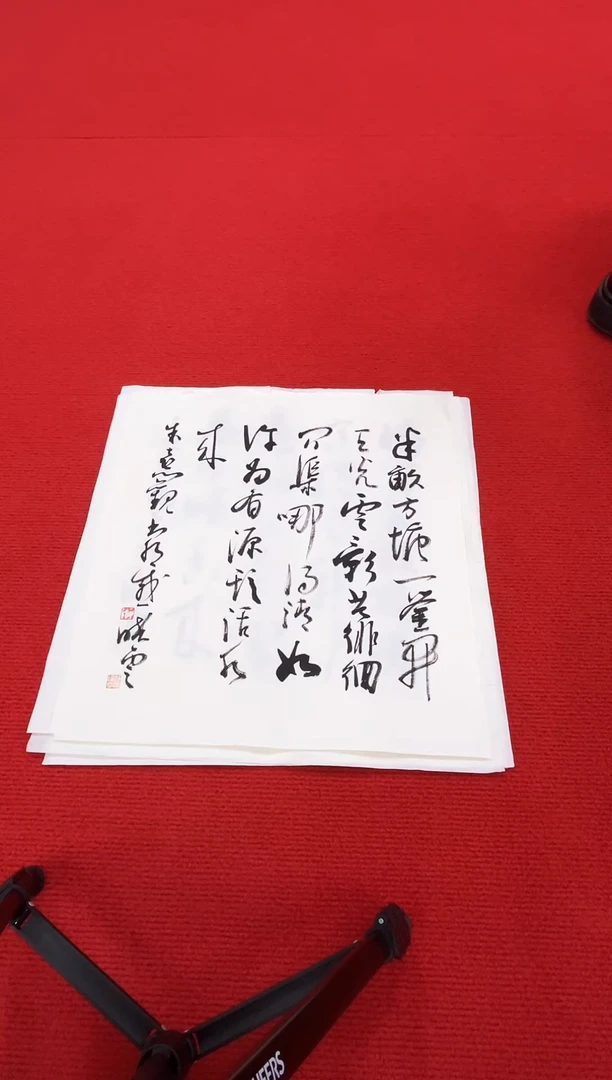 半畝方塘一鑒開
天光雲影共徘徊
問渠哪得清如
許為有源頭活水
來
朱熹觀書有感 曉雲